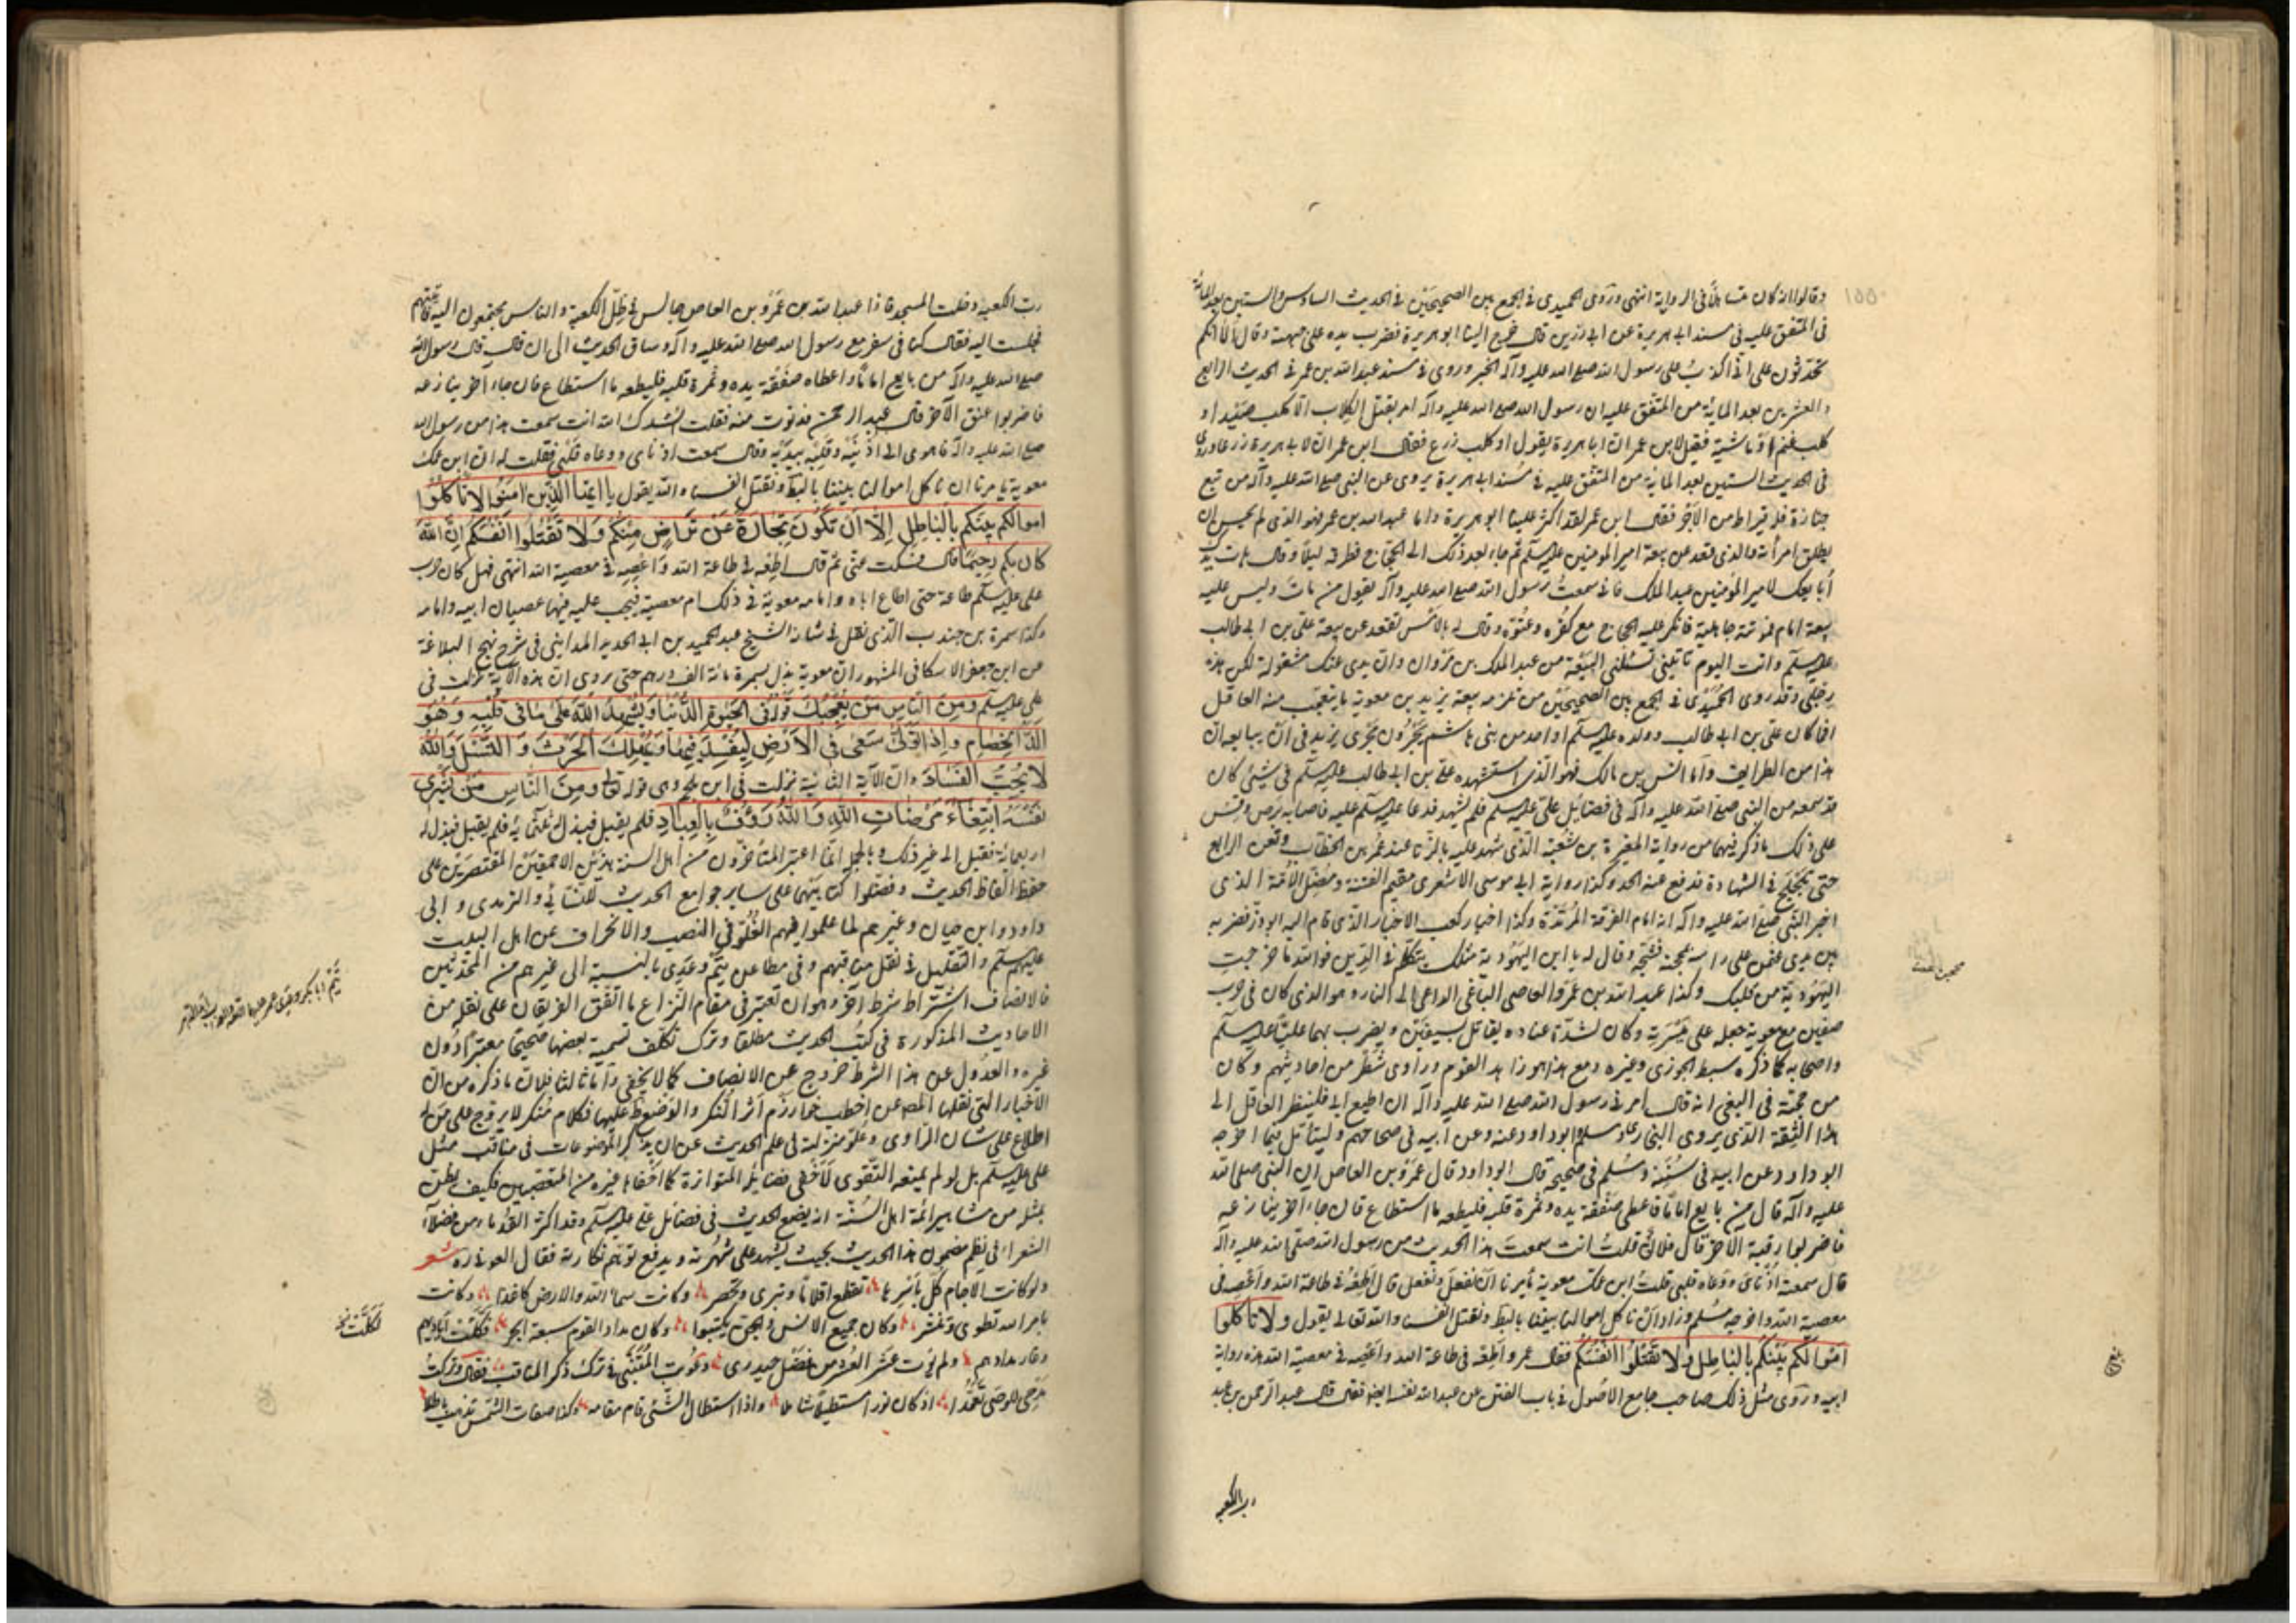 وقالوا انه كان متساهلًا في الرواية انتهى وروى الحميدى فى الجمع بين الصحيحين فى الحديث السادس والستين بعد المائة
فى المتفق عليه فى مسند ابى هريرة عن ابى رزين قال خرج الينا ابو هريرة فضرب بيده على جبهته وقال الا انكم
تحدثون على انى اكذب على رسول الله صلى الله عليه وآله الخبر وروى فى مسند عبد الله بن عمر فى الحديث الرابع
والعشرين بعد المائة من المتفق عليه ان رسول الله صلى الله عليه وآله امر بقتل الكلاب الا كلب صيد او
كلب غنم او ماشية فقيل لابن عمر ان ابا هريرة يقول او كلب زرع فقال ابن عمر ان لابى هريرة زرعا وروى
فى الحديث الستين بعد المائة من المتفق عليه فى مسند ابى هريرة يروى عن النبى صلى الله عليه وآله من تبع
جنازة فله قيراط من الاجر فقال ابن عمر لقد اكثر علينا ابو هريرة واما عبد الله بن عمر فهو الذى لم يحسن ان
يطلق امرأته والذى قعد عن بيعة امير المؤمنين عليه السلم ثم جاء بعد ذلك الى الحجاج فطرقه ليلًا وقال هات يدك
أبايعك لامير المؤمنين عبد الملك فانى سمعت رسول الله صلى الله عليه وآله يقول من مات وليس عليه
بيعة امام فموتته جاهلية فانكر عليه الحجاج مع كفره وعتوه وقال له بالامس تقعد عن بيعة على بن ابى طالب
عليه السلم وانت اليوم تأتينى تسئلنى البيعة من عبد الملك بن مروان وان يدى عنك مشغولة لكن هذه
رجلى وقد روى الحميدى فى الجمع بين الصحيحين من تلزمه بيعة يزيد بن معوية ما يتعجب منه العاقل
افما كان على بن ابى طالب وولده عليه السلم او احد من بنى هاشم يجرون مجرى يزيد فى ان يبايعه ان
هذا من الطرايف واما انس بن مالك فهو الذى استشهده على بن ابى طالب عليه السلم فى شيئ كان
قد سمعه من النبى صلى الله عليه وآله فى فضائل على عليه السلم فلم يشهد فدعا عليه السلم عليه فاصابه برص وقس
على ذلك ما ذكر فيهما من رواية المغيرة بن شعبة الذى شهد عليه بالزنا عند عمر بن الخطاب ولقن الرابع
حتى تلجلج فى الشهادة فدفع عنه الحد وكذا رواية ابى موسى الاشعرى مقيم الفتنة ومضل الأمة الذى
اخبر النبى صلى الله عليه وآله انه امام الفرقة المرتدة وكذا اخبار كعب الاخبار الذى قام اليه ابو ذر فضربه
بين يدى عثمن على راسه بمحجنه فشجه وقال له يا ابن اليهودية مثلك يتكلم فى الدين فوالله ما خرجت
اليهودية من قلبك وكذا عبد الله بن عمرو العاصى الباغى الداعى الى النار وهو الذى كان فى حرب
صفين مع معوية جعله على ميسرته وكان لشدة عناده يقاتل بسيفين ويضرب بهما عليًا عليه السلم
واصحابه كما ذكره سبط الجوزى وغيره ومع هذا هو زاهد القوم وراوى شطر من احاديثهم وكان
من حجته فى البغى انه قال امرنى رسول الله صلى الله عليه وآله ان اطيع ابى فلينظر العاقل الى
هذا الثقة الذى يروى البخارى ومسلم وابو داود عنه وعن ابيه فى صحاحهم وليتأمل فيما اخرجه
ابو داود عن ابيه فى سننه ومسلم فى صحيحه قال ابو داود قال عمرو بن العاص ان النبى صلى الله
عليه وآله قال من بايع امامًا فاعطى صفقة يده وثمرة قلبه فليطعه ما استطاع فان جاء آخر ينازعه
فاضربوا رقبة الآخر قال فلان قلت انت سمعت هذا الحديث من رسول الله صلى الله عليه وآله
قال سمعته اذناى ووعاه قلبى قلت ابن عمك معوية يأمرنا ان نفعل ونفعل قال أطعه فى طاعة الله واعصه فى
معصية الله واخرجه مسلم وزاد ان نأكل اموالنا بيننا بالبط ونقتل انفسنا والله تعالى يقول ولا تاكلوا
اموالكم بينكم بالباطل ولا تقتلوا انفسكم فقال عمرو اطعه فى طاعة الله واعصه فى معصية الله هذه رواية
ابيه وروى مثل ذلك صاحب جامع الاصول فى باب الفتن عن عبد الله نفسه ايضا فقال قال عبد الرحمن بن عبد
رب الكعبه
رب الكعبه دخلت المسجد فاذا عبد الله بن عمرو بن العاص جالس فى ظل الكعبة والناس مجتمعون اليه فاتيتهم
فجلست اليه فقال كنا فى سفر مع رسول الله صلى الله عليه وآله وساق الحديث الى ان قال قال رسول الله
صلى الله عليه وآله من بايع امامًا واعطاه صفقة يده وثمرة قلبه فليطعه ما استطاع فان جاء آخر ينازعه
فاضربوا عنق الآخر قال عبد الرحمن فدنوت منه فقلت انشدك الله انت سمعت هذا من رسول الله
صلى الله عليه وآله فاهوى الى اذنيه وقلبه بيديه وقال سمعت اذناى ووعاه قلبى فقلت له ان ابن عمك
معوية يأمرنا ان ناكل اموالنا بيننا بالبط ونقتل انفسنا والله يقول يا ايها الذين امنوا لا تاكلوا
اموالكم بينكم بالباطل الا ان تكون تجارة عن تراض منكم ولا تقتلوا انفسكم ان الله
كان بكم رحيمًا قال فسكت عنى ثم قال اطعه فى طاعة الله واعصه فى معصية الله انتهى فهل كان حرب
على عليه السلم طاعة حتى اطاع اباه وامامه معوية فى ذلك ام معصية فيجب عليه فيهما عصيان ابيه وامامه
وكذا سمرة بن جندب الذى نقل فى شانه الشيخ عبد الحميد بن ابى الحديد المداينى فى شرح نهج البلاغة
عن ابى جعفر الاسكافى المشهور ان معوية بذل لسمرة مائة الف درهم حتى يروى ان هذه الآية نزلت فى
على عليه السلم ومن الناس من يعجبك قوله فى الحيوة الدنيا ويشهد الله على ما فى قلبه وهو
الد الخصام واذا تولى سعى فى الارض ليفسد فيها ويهلك الحرث و النسل والله
لا يحب الفساد وان الآية الثانية نزلت فى ابن ملجم وهى قوله تعالى ومن الناس من يشرى
نفسه ابتغاء مرضات الله والله رؤف بالعباد فلم يقبل فبذل له مأتى مائة فلم يقبل فبذل له
اربعمائة فقبل الى غير ذلك وبالجملة انما اعتبر المتأخرون من اهل السنة هذين الاحمقين المقتصرين على
حفظ الفاظ الحديث وفضلوا كتابيهما على ساير جوامع الحديث للنسائى والترمذى و ابى
داود وابن حيان وغيرهم لما علموا فيهم الغلو فى النصب والانحراف عن اهل البيت
عليهم السلم والتقليل فى نقل مناقبهم وفى مطاعن تيم وعدى بالنسبة الى غيرهم من المحدثين
فالانصاف اشتراط شرط آخر وهو ان نعتبر فى مقام النزاع ما اتفق الفريقان على نقله من
الاحاديث المذكورة فى كتب الحديث مطلقا وترك تكلف تسمية بعضها صحيحًا معتبرًا دون
غيره والعدول عن هذا الشرط خروج عن الانصاف كما لا يخفى واما ثالثا فلان ما ذكره من ان
الاخبار التى نقلها المصـ عن اخطب خوارزم اثر النكر والوضع ظ عليها فكلام منكر لا يروج على من له
اطلاع على شان الراوى وعلو منزلته فى علم الحديث عن ان يذكر الموضوعات فى مناقب مثل
على عليه السلم بل لو لم يمنعه التقوى لاخفى فضايله المتواترة كما اخفاها غيره من المتعصبين فكيف يظن
بمثله من مشاهير ائمة اهل السنة انه يضع الحديث فى فضايل على عليه السلم وقد اكثر القدماء من فضلاء
الشعراء فى نظم مضمون هذا الحديث بحيث يشهد على شهرته ويدفع توهم نكارته فقال العونى ره شعر
ولو كانت الآجام كل باسرها تقطع اقلامًا وتبرى وتحضر وكانت سماء الله والارض كاغذا وكانت
بامر الله تطوى وتنشر وكان جميع الانس والجن يكتبوا وكان مداد القوم سبعة ابحر فكلت اياديهم
وغار مدادهم ولم يؤت عشر العشر من فضل حيدرى وعوتب المتنبى فى ترك ذكر المناقب فقال وتركت
مدحى للوصى تعمدا اذ كان نورا مستطيلا شاملا واذا استطال الشئ قام مقامه وكذا صفات الشمس تذهب باطلا
لكلت نخ